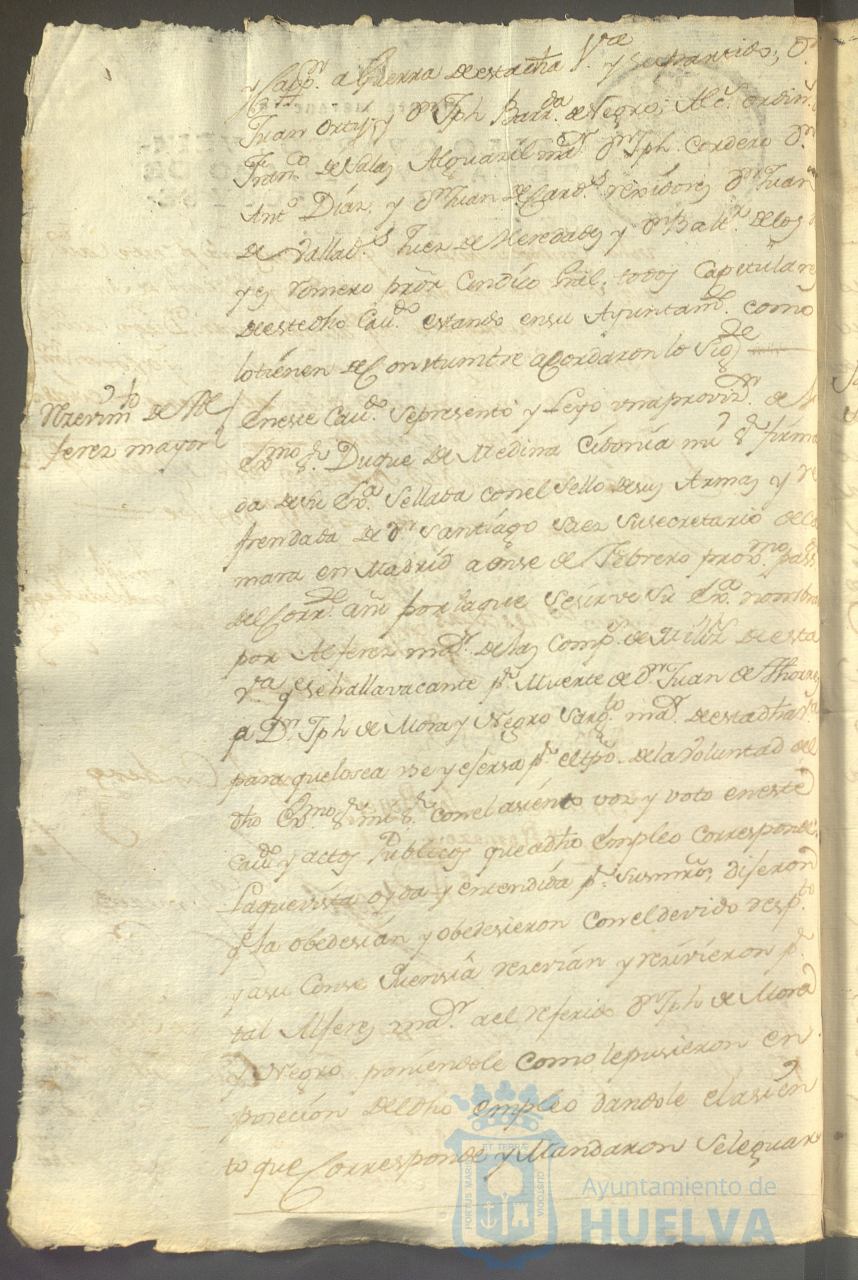 y Capn. a Guerra de esta dha Va. y su partido; Dn.
Juan Ortiz, y Dn. Jph Barrda. de Negro, Alc. ordin.
Franco. de Salas Alguazil mor. Dn. Jph. Cordero Dn.
Anto. Diaz, y Dn. Juan de Card.s rexidores Dn. Juan
de Vallad.s Juez de Heredades y Dn. Balt.r de los
Reyes Romero prõr Cindico Gral, todos Capitulares
de este dho Cavdo. estando en su Ayuntamto. como
lo tienen de Constumbre acordaron lo Sigte
Rezevimto de Al
ferez mayor
En este Cavdo. se presento y Leyo una proviz.on de el
Exmo. Sr. Duque de Medina Cidonia mi Sr. firma
da de su Exa. Sellada con el Sello de sus Armas y re
frendada de Dn. Santiago Saez su secretario de Ca
mara en Madrid a onse de Febrero proxmo. pasdo.
del Corrte. año por la que se sirve Su Exa. nombrar
por Alferez mor. de las Comps. de Miliz.s de esta
Va. q se halla vacante pr. Muerte de Dn. Juan de Thorres
a Dn. Jph de Mora y Negro Sargto. mor. de esta dha Va.
para que lo sea use y efersa pr. el tpo. de la Voluntad del
dho Exmo. Sr. mi Sr. con el asiento voz y voto en este
Cavdo y actos Publicos que a dho Empleo corresponde.
La que vista oyda y entendida pr. sus mrds, diferon
q la obedesian y obedesieron con el devido respto.
y a su Conse quensia rezevian y rezivieron pr.
tal Alferez mor. a el referido Dn. Jph de Mora
y Negro poniendole como le pusieron en
posecion del dho empleo dandole el asien
to que Corresponde y Mandaron se le guar
PORTUS MARIS ET TERRE CUSTODIA
Ayuntamiento de
HUELVA